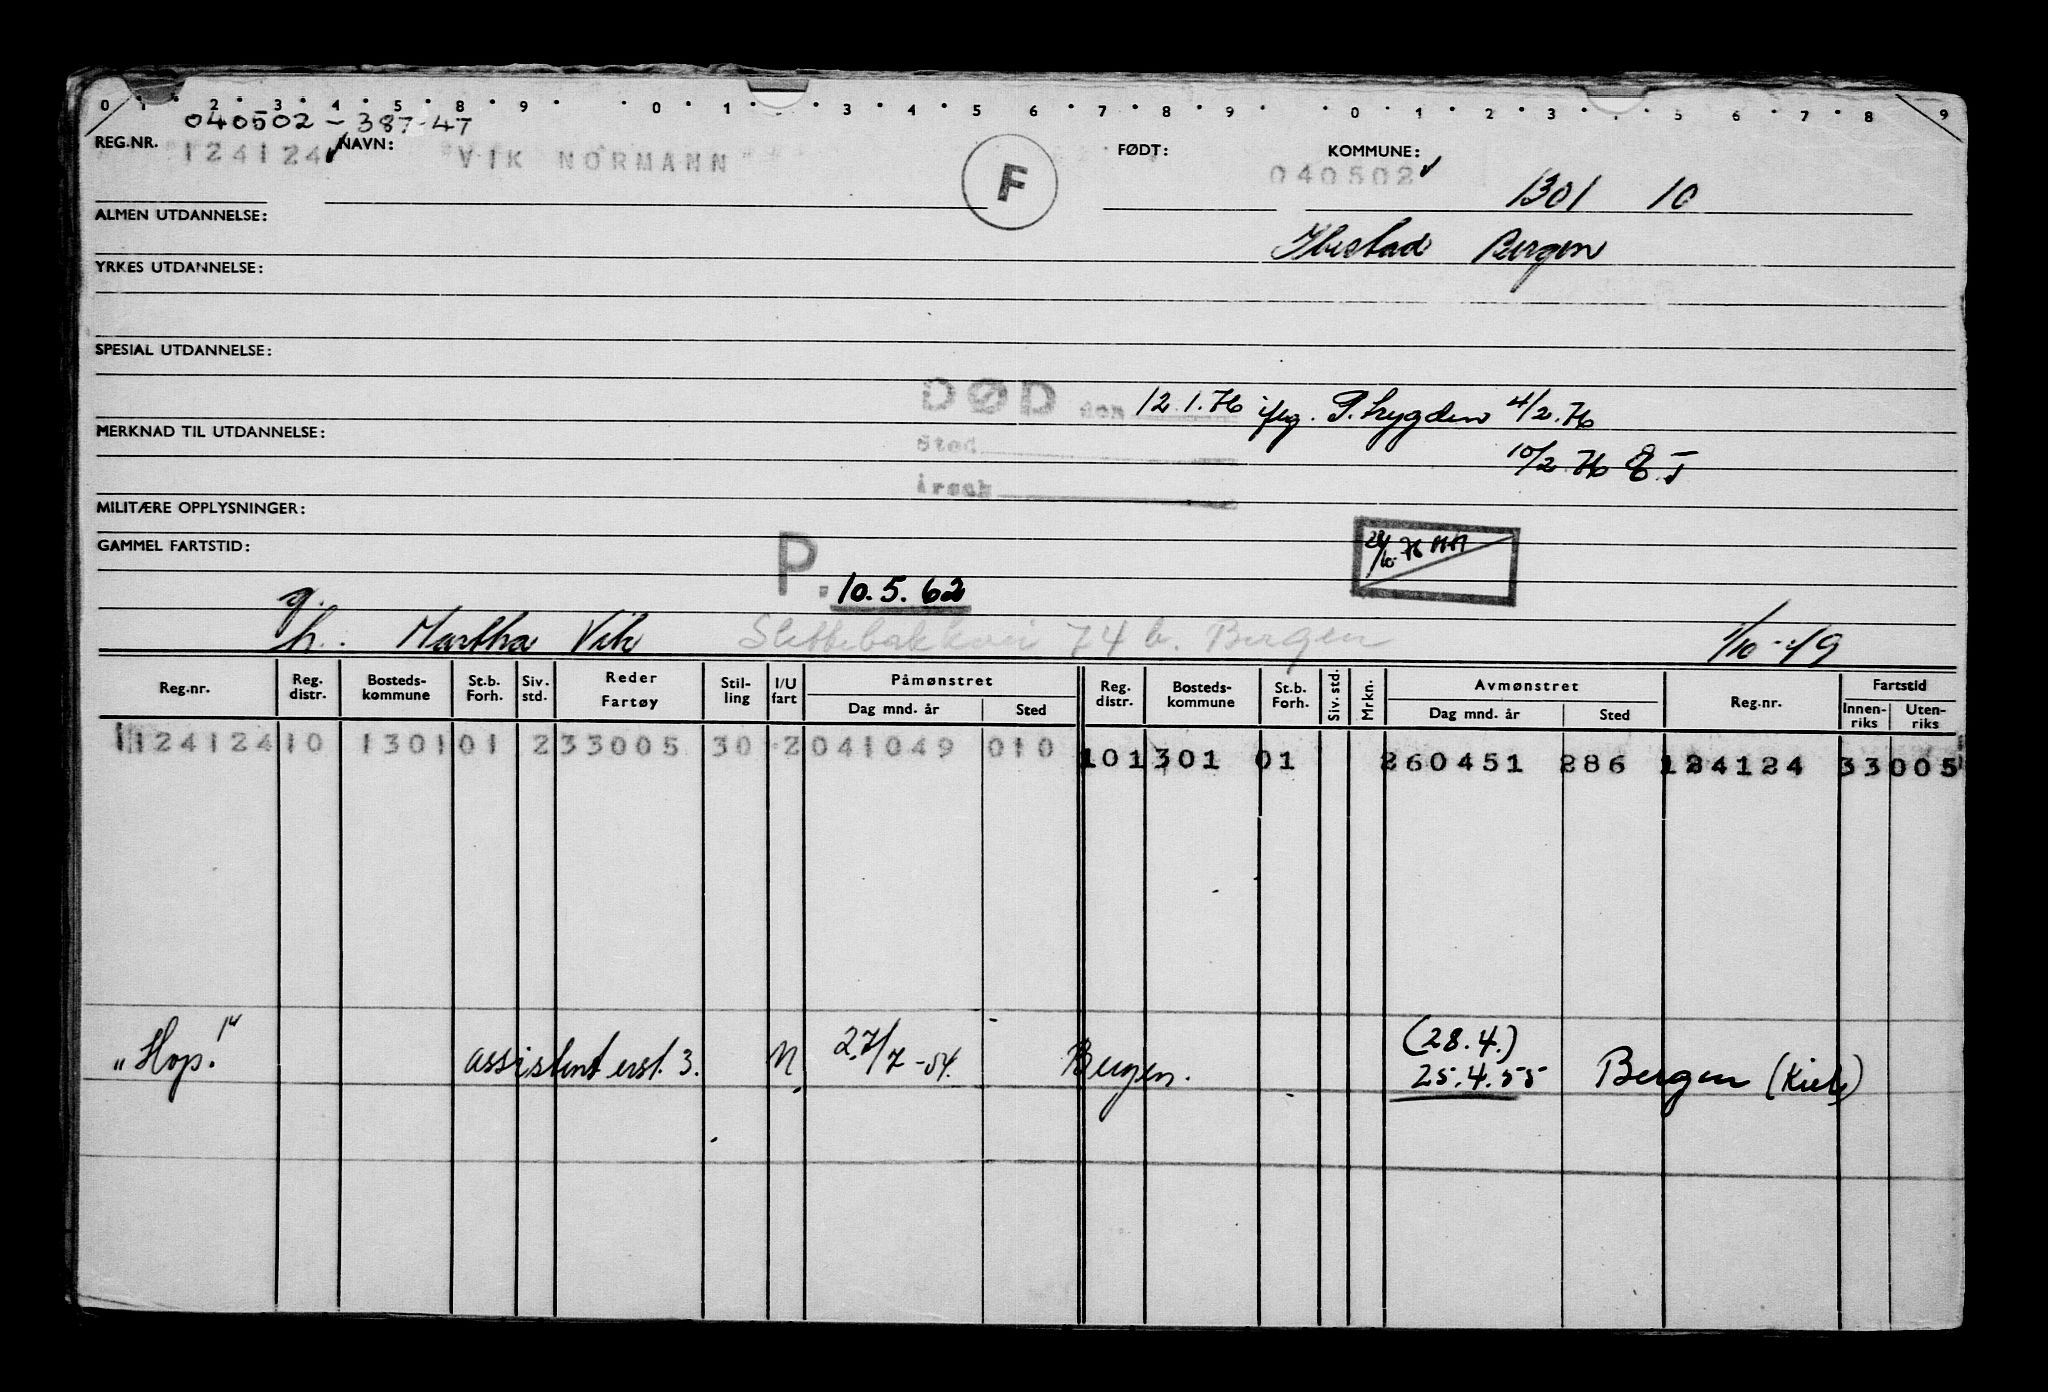 0 1 2 3 4 5 8 9 0 1 3 4 5 6 7 8 9 0 1 2 3 5 6 7 8 9
040502 - 387-47
REG.NR. 124124 NAVN: VIK NORMANN F FØDT: KOMMUNE: 040502
1301 10
ALMEN UTDANNELSE:
Ibestad Bergen
YRKES UTDANNELSE:
SPESIAL UTDANNELSE:
DØD den 12.1.76 iflg. P.trygden 4/2.76
MERKNAD TIL UTDANNELSE:
Sted 10/2.76
Årsak
MILITÆRE OPPLYSNINGER:
GAMMEL FARTSTID:
P. 10.5.62
g.
h. Martha Vik Slettebakkvei 74 b. Bergen 1/10-49
Reg.nr. Reg. distr. Bosteds-kommune St.b. Forh. Siv. std. Reder Fartøy Stil-ling I/U fart Påmønstret Dag mnd. år Sted Reg. distr. Bosteds-kommune St.b. Forh. Siv. std. Mrkn. Avmønstret Dag mnd. år Sted Reg.nr. Fartstid Innen-riks Uten-riks
124124 10 1301 01 2 33005 30 2 041049 010 10 1301 01 260451 286 124124 33005
"Hop" assistent erst. 3. N 27/7-54. Bergen. (28.4.) 25.4.55 Bergen (Kiel)